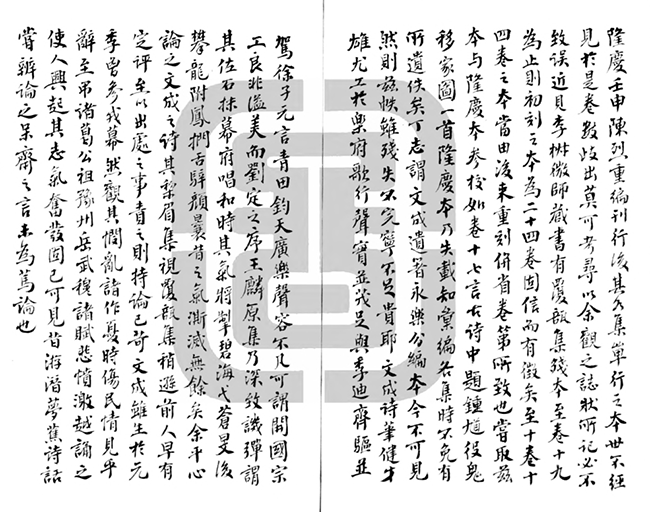 隆慶壬申陳烈重編刊行後其分集單行之本世不經
見於是卷數歧出莫可考尋以余觀之誌狀所記必不
致誤近見李椒微師藏書有覆瓿集殘本至卷十九
為止則初刻之本為二十四卷固信而有徵矣至十卷十
四卷之本當由後來重刻併省卷第所致也嘗取茲
本與隆慶本參校如卷十七言古詩中題鍾馗役鬼
移家圖一首隆慶本乃失載知彙編各集時不免有
所遺佚矣丁志謂文成遺著永樂公編本今不可見
然則茲帙雖殘失不完寧不足貴耶文成詩筆健才
雄尤工於樂府歌行聲實並茂足與季迪齊驅並
駕徐子元言青田鈞天廣樂聲容不凡可謂開國宗
工良非溢美而劉定之序王麟原集乃深致譏彈謂
其佐石抹幕府唱和時其氣將掣碧海弋蒼旻後
攀龍附鳳捫舌騂顏曩昔之氣澌滅無餘矣余平心
論之文成之詩其犁眉集視覆瓿集稍遜前人早有
定評至以出處之事責之則持論已苛文成雖生於元
季曾參戎幕然觀其憫亂諸作憂時傷民情見乎
辭至弔諸葛公祖豫州岳武穆諸賦悲憤激越誦之
使人興起其志氣奮發固已可見昔游潛夢蕉詩話
嘗辨論之呆齋之言未為篤論也